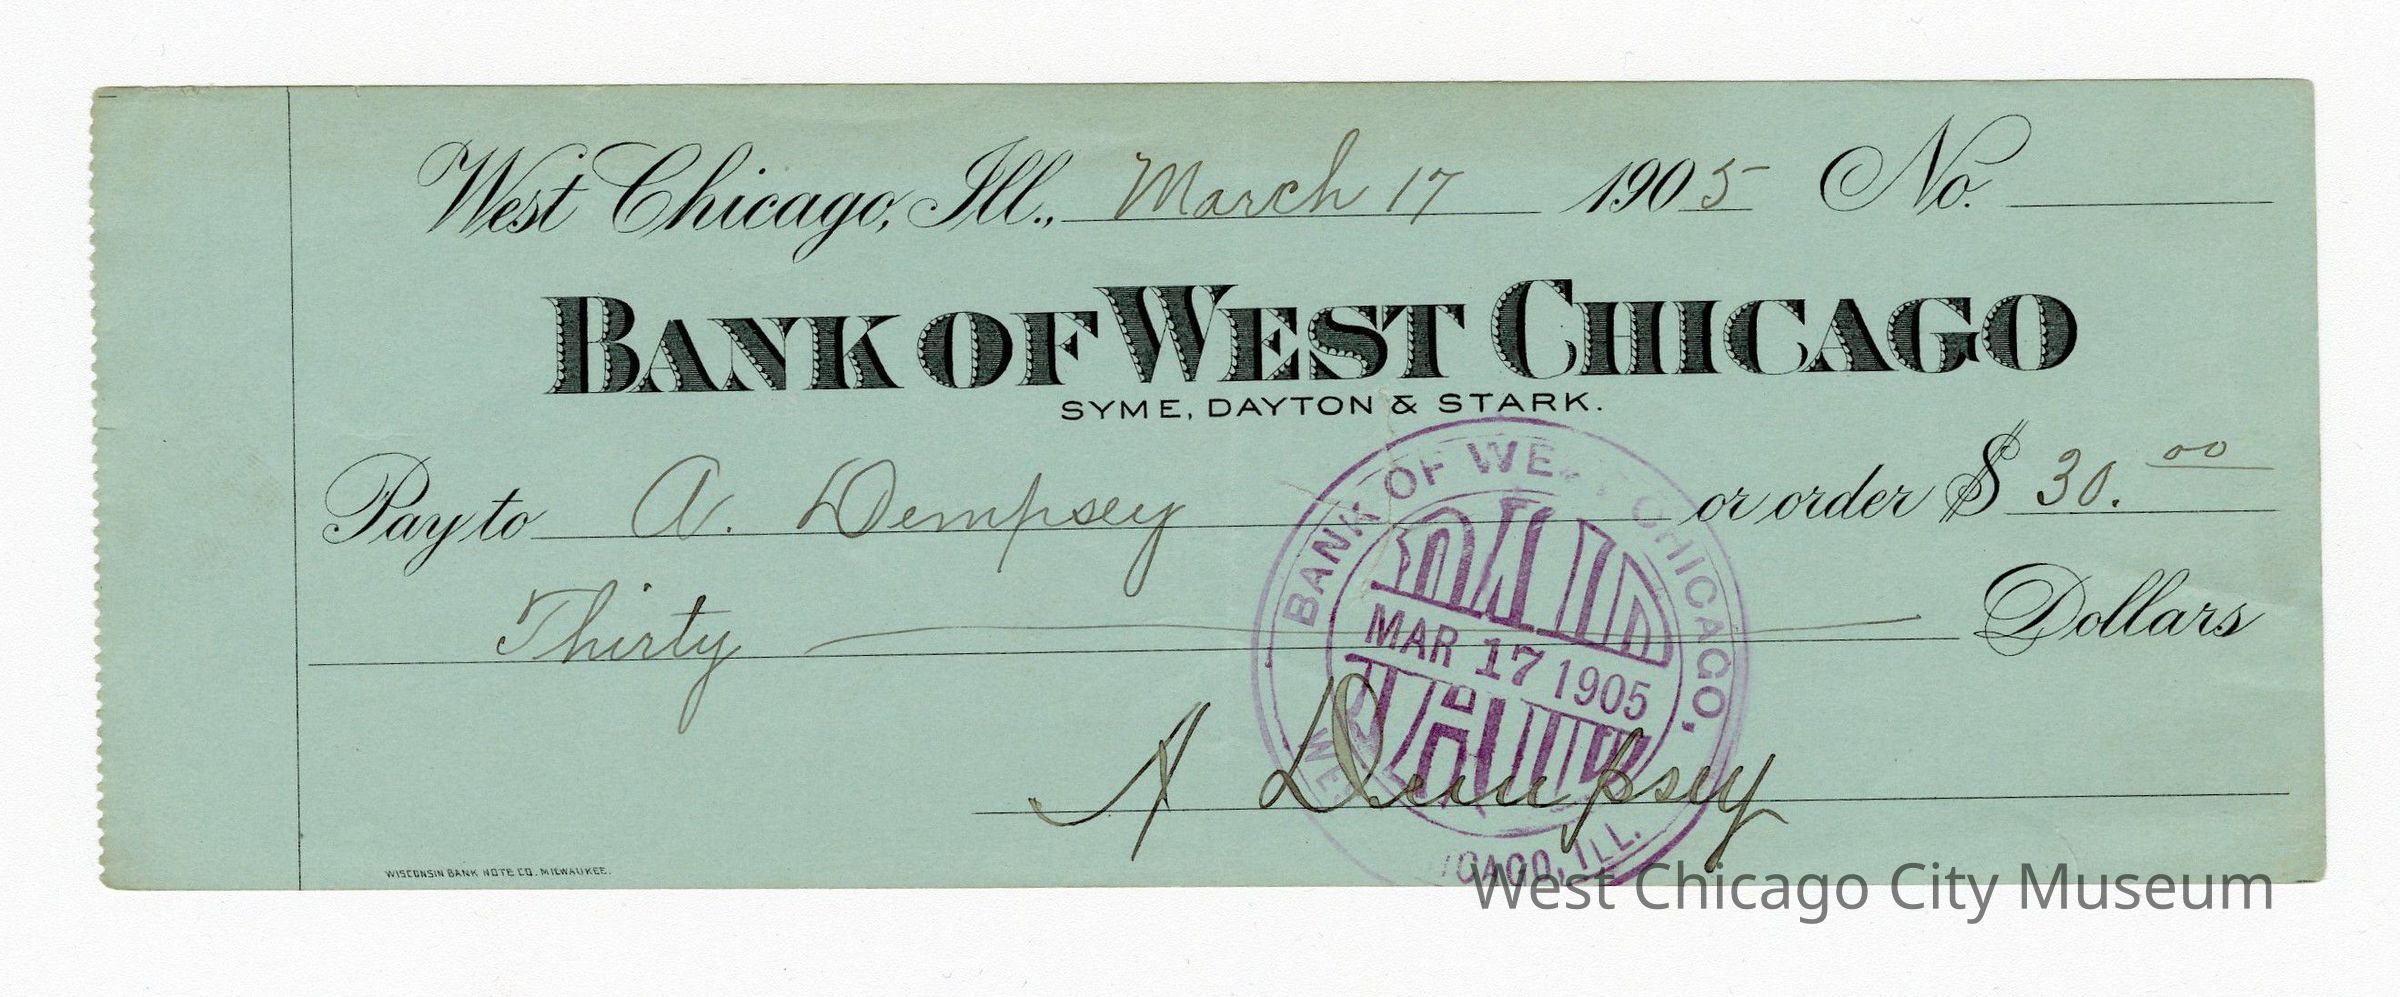 West Chicago, Ill., March 17 1905 No.
BANK OF WEST CHICAGO
SYME, DAYTON & STARK.
Pay to A. Dempsey or order $ 30.00
Thirty Dollars
BANK OF WEST CHICAGO,
PAID
MAR 17 1905
PAID
WEST CHICAGO, ILL.
A Dempsey
WISCONSIN BANK NOTE CO. MILWAUKEE.
West Chicago City Museum